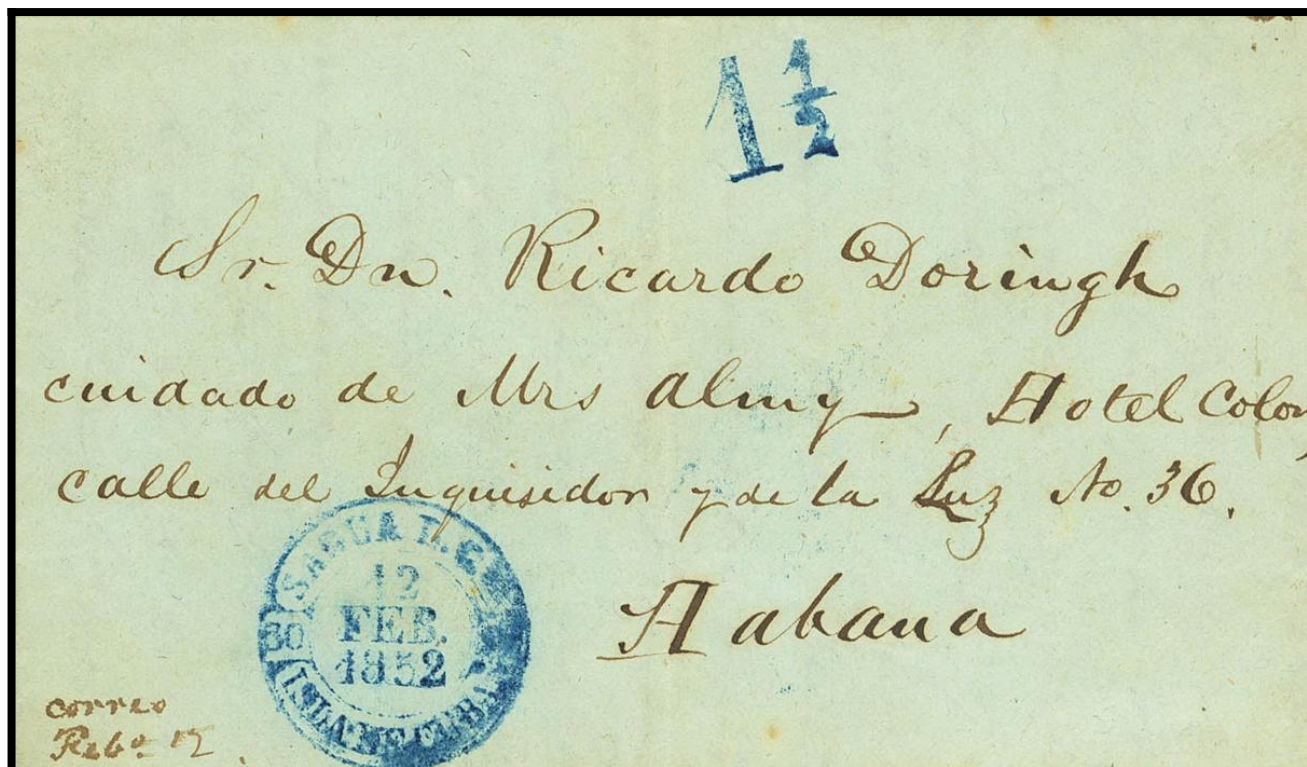 1 1/2
Sr. Dn. Ricardo Doringh
cuidado de Mrs Almy, Hotel Colon,
calle del Inquisidor y de la Luz No. 36.
Habana
SAGUA L. G.
12
FEB.
1852
ISLA DE CUBA
correo
Feb° 12